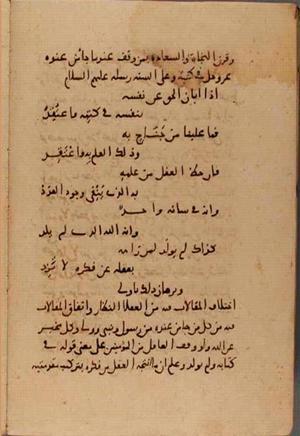 وقرن النجاة والسعادة بمن وقف عندما جاءت عنده
عز وجل في كتبه وعلى السنة رسله عليهم السلام
اذا ابان الحق عن نفسه
بنفسه في كتبه ما عنقد
فما علينا من جناح به
وذلك العلم به واعتقد
فان حظ العقل من علمه
به الذي ينفى وجود العدد
وانه في شانه واحد
وانه الله الذي لم يلد
كذاك لم يولد لمن زامه
بعقله عن فكره لا تزد
وبرهان ذلك
اختلاف المقالات فيه من العقلا النظار واتفاق المقالات
فيه من كل من جا من عنده من رسول ونبي وولي وكل مخبر
عن الله ولو وقف العاقل من المؤمنين على معنى قوله في
كتابه ولم يولد وعلم ان ما انتجه العقل من فكره بتركيب مقدمتيه